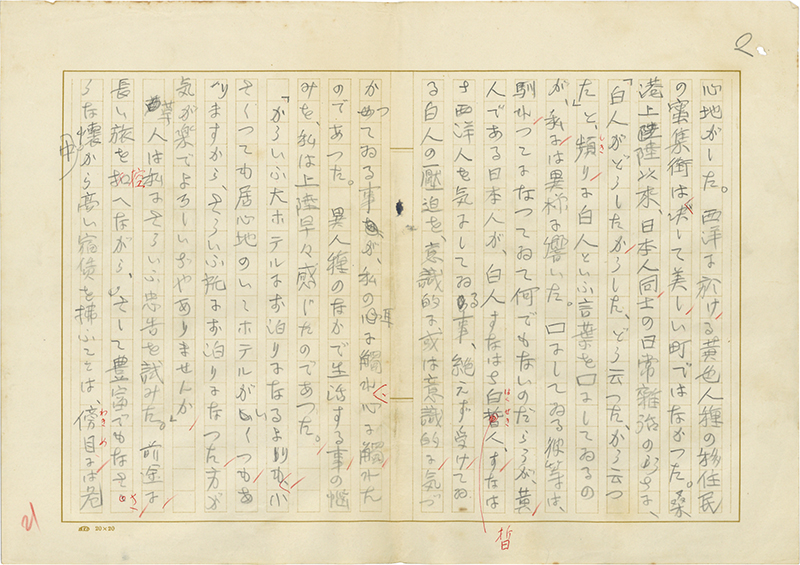 2
心地がした。西洋に於ける黄色人種の移住民
の密集街は決して美しい町ではなかつた。桑
港上陸以来、日本人同士の日常雑談の折々に、
「白人がどうしたかうした、どう云つたかう云つ
た」と、頻りに白人といふ言葉を口にしてゐるの
が、私には異様に響いた。口にしてゐる彼等は、
馴れつこになつてゐて何でもないのだらうが、黄
人である日本人が、白人すなはち白皙人、すなは
ち西洋人を気にしてゐる事、絶えず受けてゐ
る白人の圧迫を意識的に或は意識的に気づ
かつてゐる事が、私の耳に触れ心に触れた
のであつた。異人種のなかで生活する事の悩
みを、私は上陸早々感じたのであつた。
「かういふ大ホテルにお泊りになるよりも、小
さくつても居心地のいいホテルがいくつもあ
りますから、さういふ所にお泊りになつた方が
気が楽でよろしいぢやありませんか」
人は私にさういふ忠告を試みた。前途に
長い旅を控へながら、そして豊富でもなささ
うな懐から高い宿賃を払ふことは、傍目には危
はくせき
わきめ
皙
21
20×20